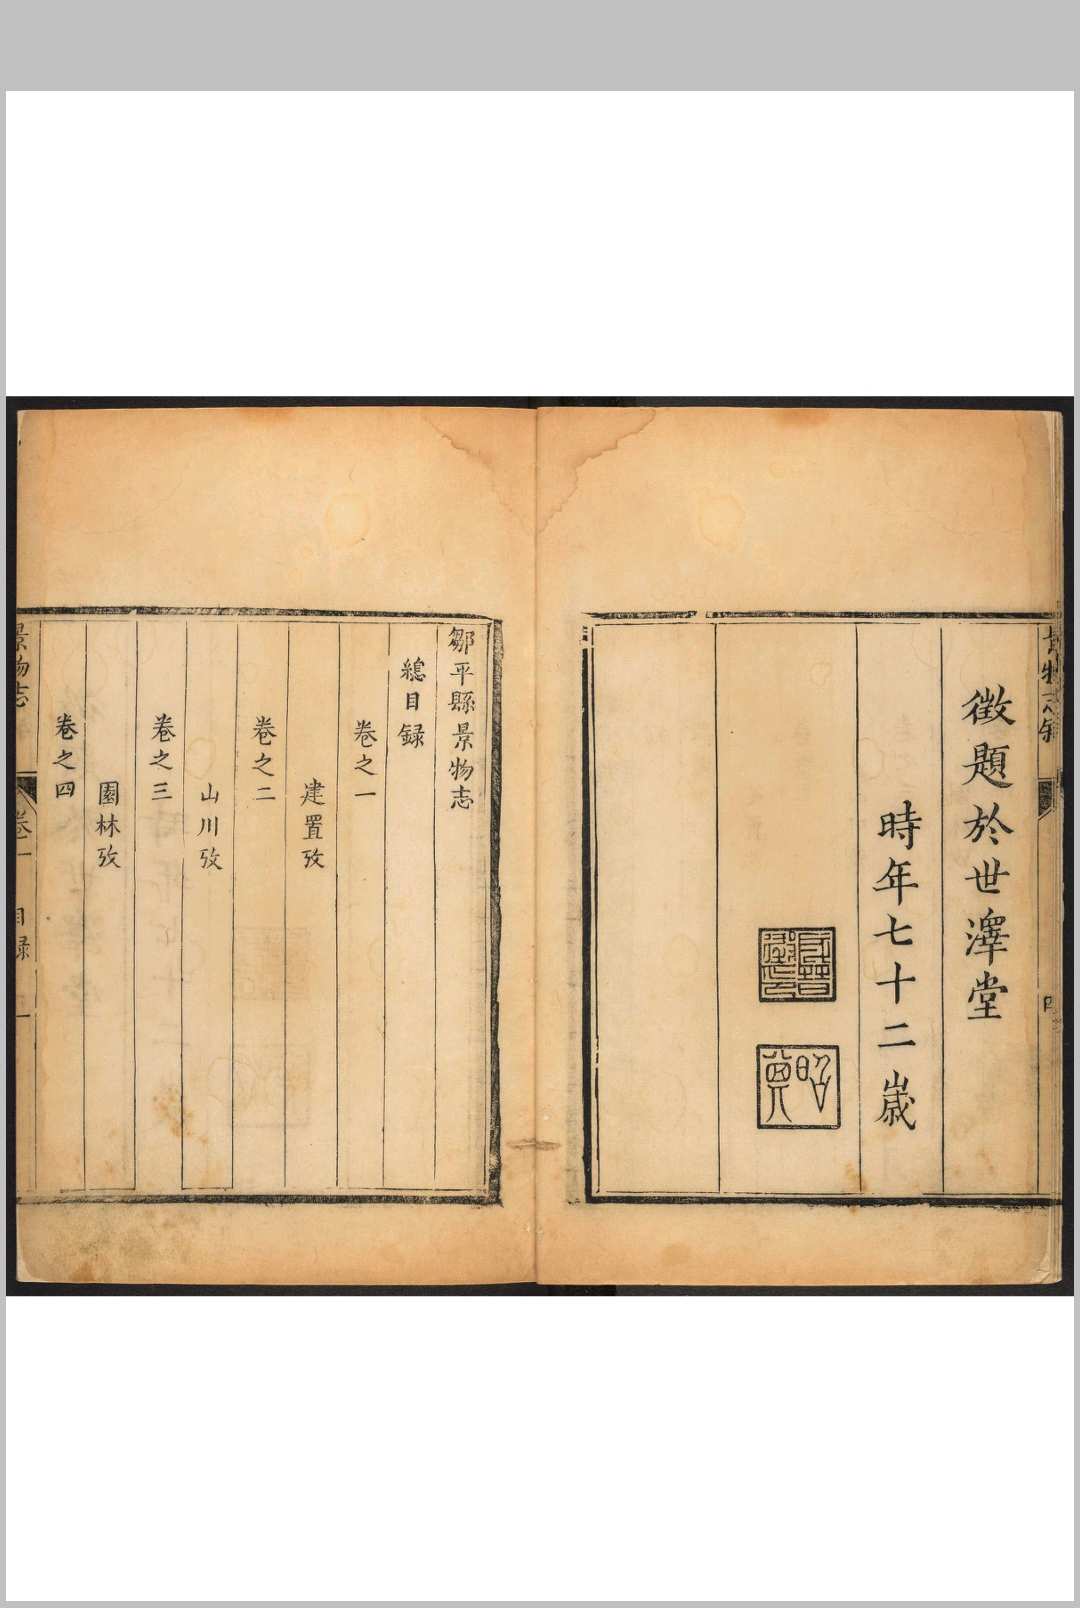 徵題於世澤堂
時年七十二歲
鄒平縣景物志
總目録
卷之一
建置攷
卷之二
山川攷
卷之三
園林攷
卷之四
景物志
卷一
目録
一